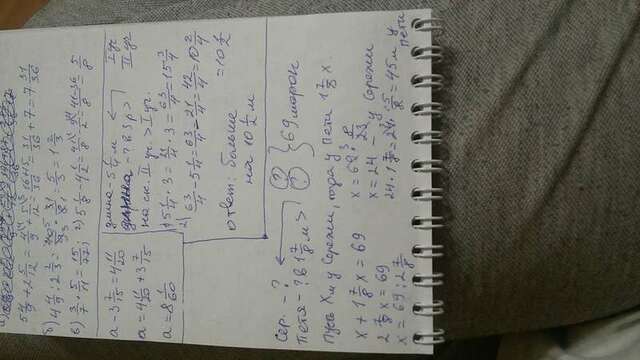 5 4/9 + 2 5/12 = 4/9 + 5/12 = 16+15/36 = 31/36 + 7 = 7 31/36
б) 4 4/9 : 2 2/3 = 40/9 · 3/8 = 5/3 = 1 2/3
в) 3/7 · 5/11 = 15/77; г) 5 1/8 - 4 1/2 = 41/8 - 9/2 = 41-36/8 = 5/8
а - 3 7/15 = 4 11/20
а = 4 11/20 + 3 7/15
а = 8 1/60
длина - 5 1/4 м I уч
- ? в 3 р > II уч
на ск. II уч. > I уч.
1) 5 1/4 · 3 = 21/4 · 3 = 63/4 = 15 3/4
2) 63/4 - 5 1/4 = 63/4 - 21/4 = 42/4 = 10 2/4
= 10 1/2
ответ: больше
на 10 1/2 м
Сер. - ?
Петя - ? в 1 7/8 м >
? ? } 69 марок
Пусть х м у Сережи, тогда у Пети 1 7/8 х.
х + 1 7/8 х = 69
2 7/8 х = 69
х = 69 : 2 7/8
х = 69 · 8/23
х = 24 - у Сережи
24 · 1 7/8 = 24 · 15/8 = 45 м у Пети